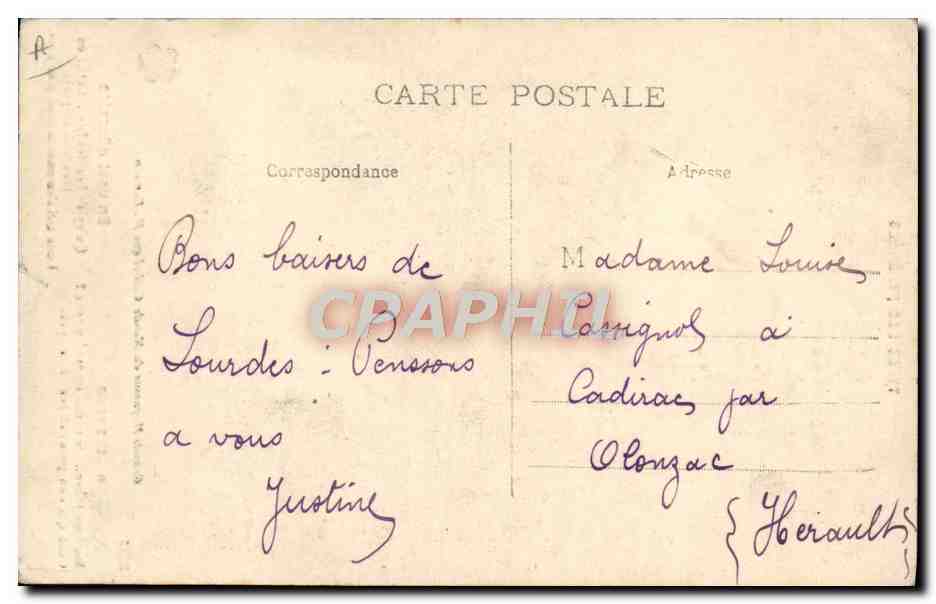 A
CARTE POSTALE
Correspondance
Adresse
Bons baisers de
Lourdes - Penssons
a vous
Justine
Madame Louise
Cassignol à
Cadirac par
Olonzac
(Herault)
CPAPHIL